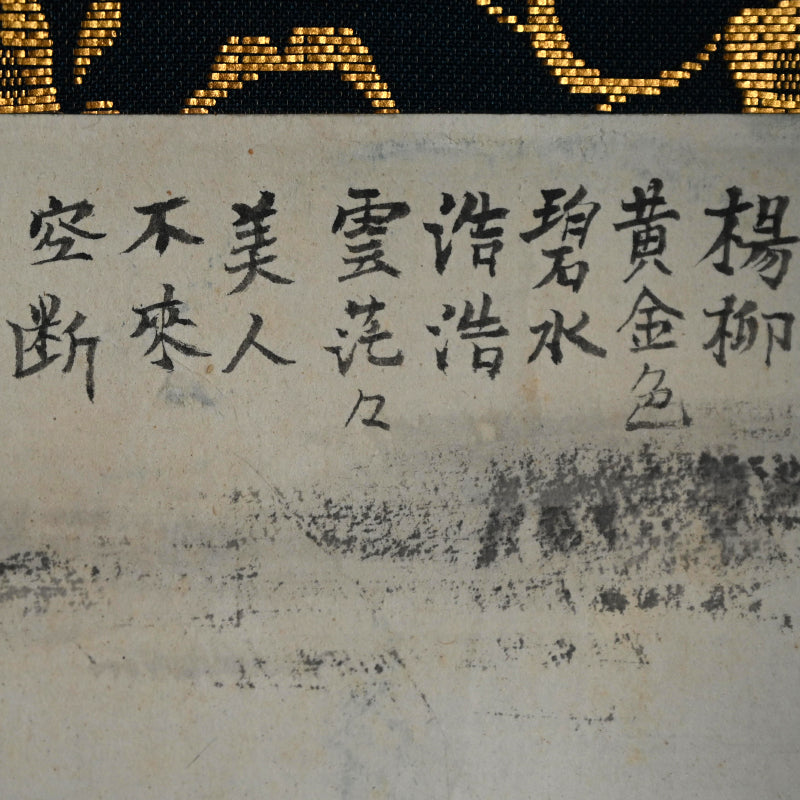 楊柳
黄金色
碧水
浩浩
雲茫々
美人
不來
空断